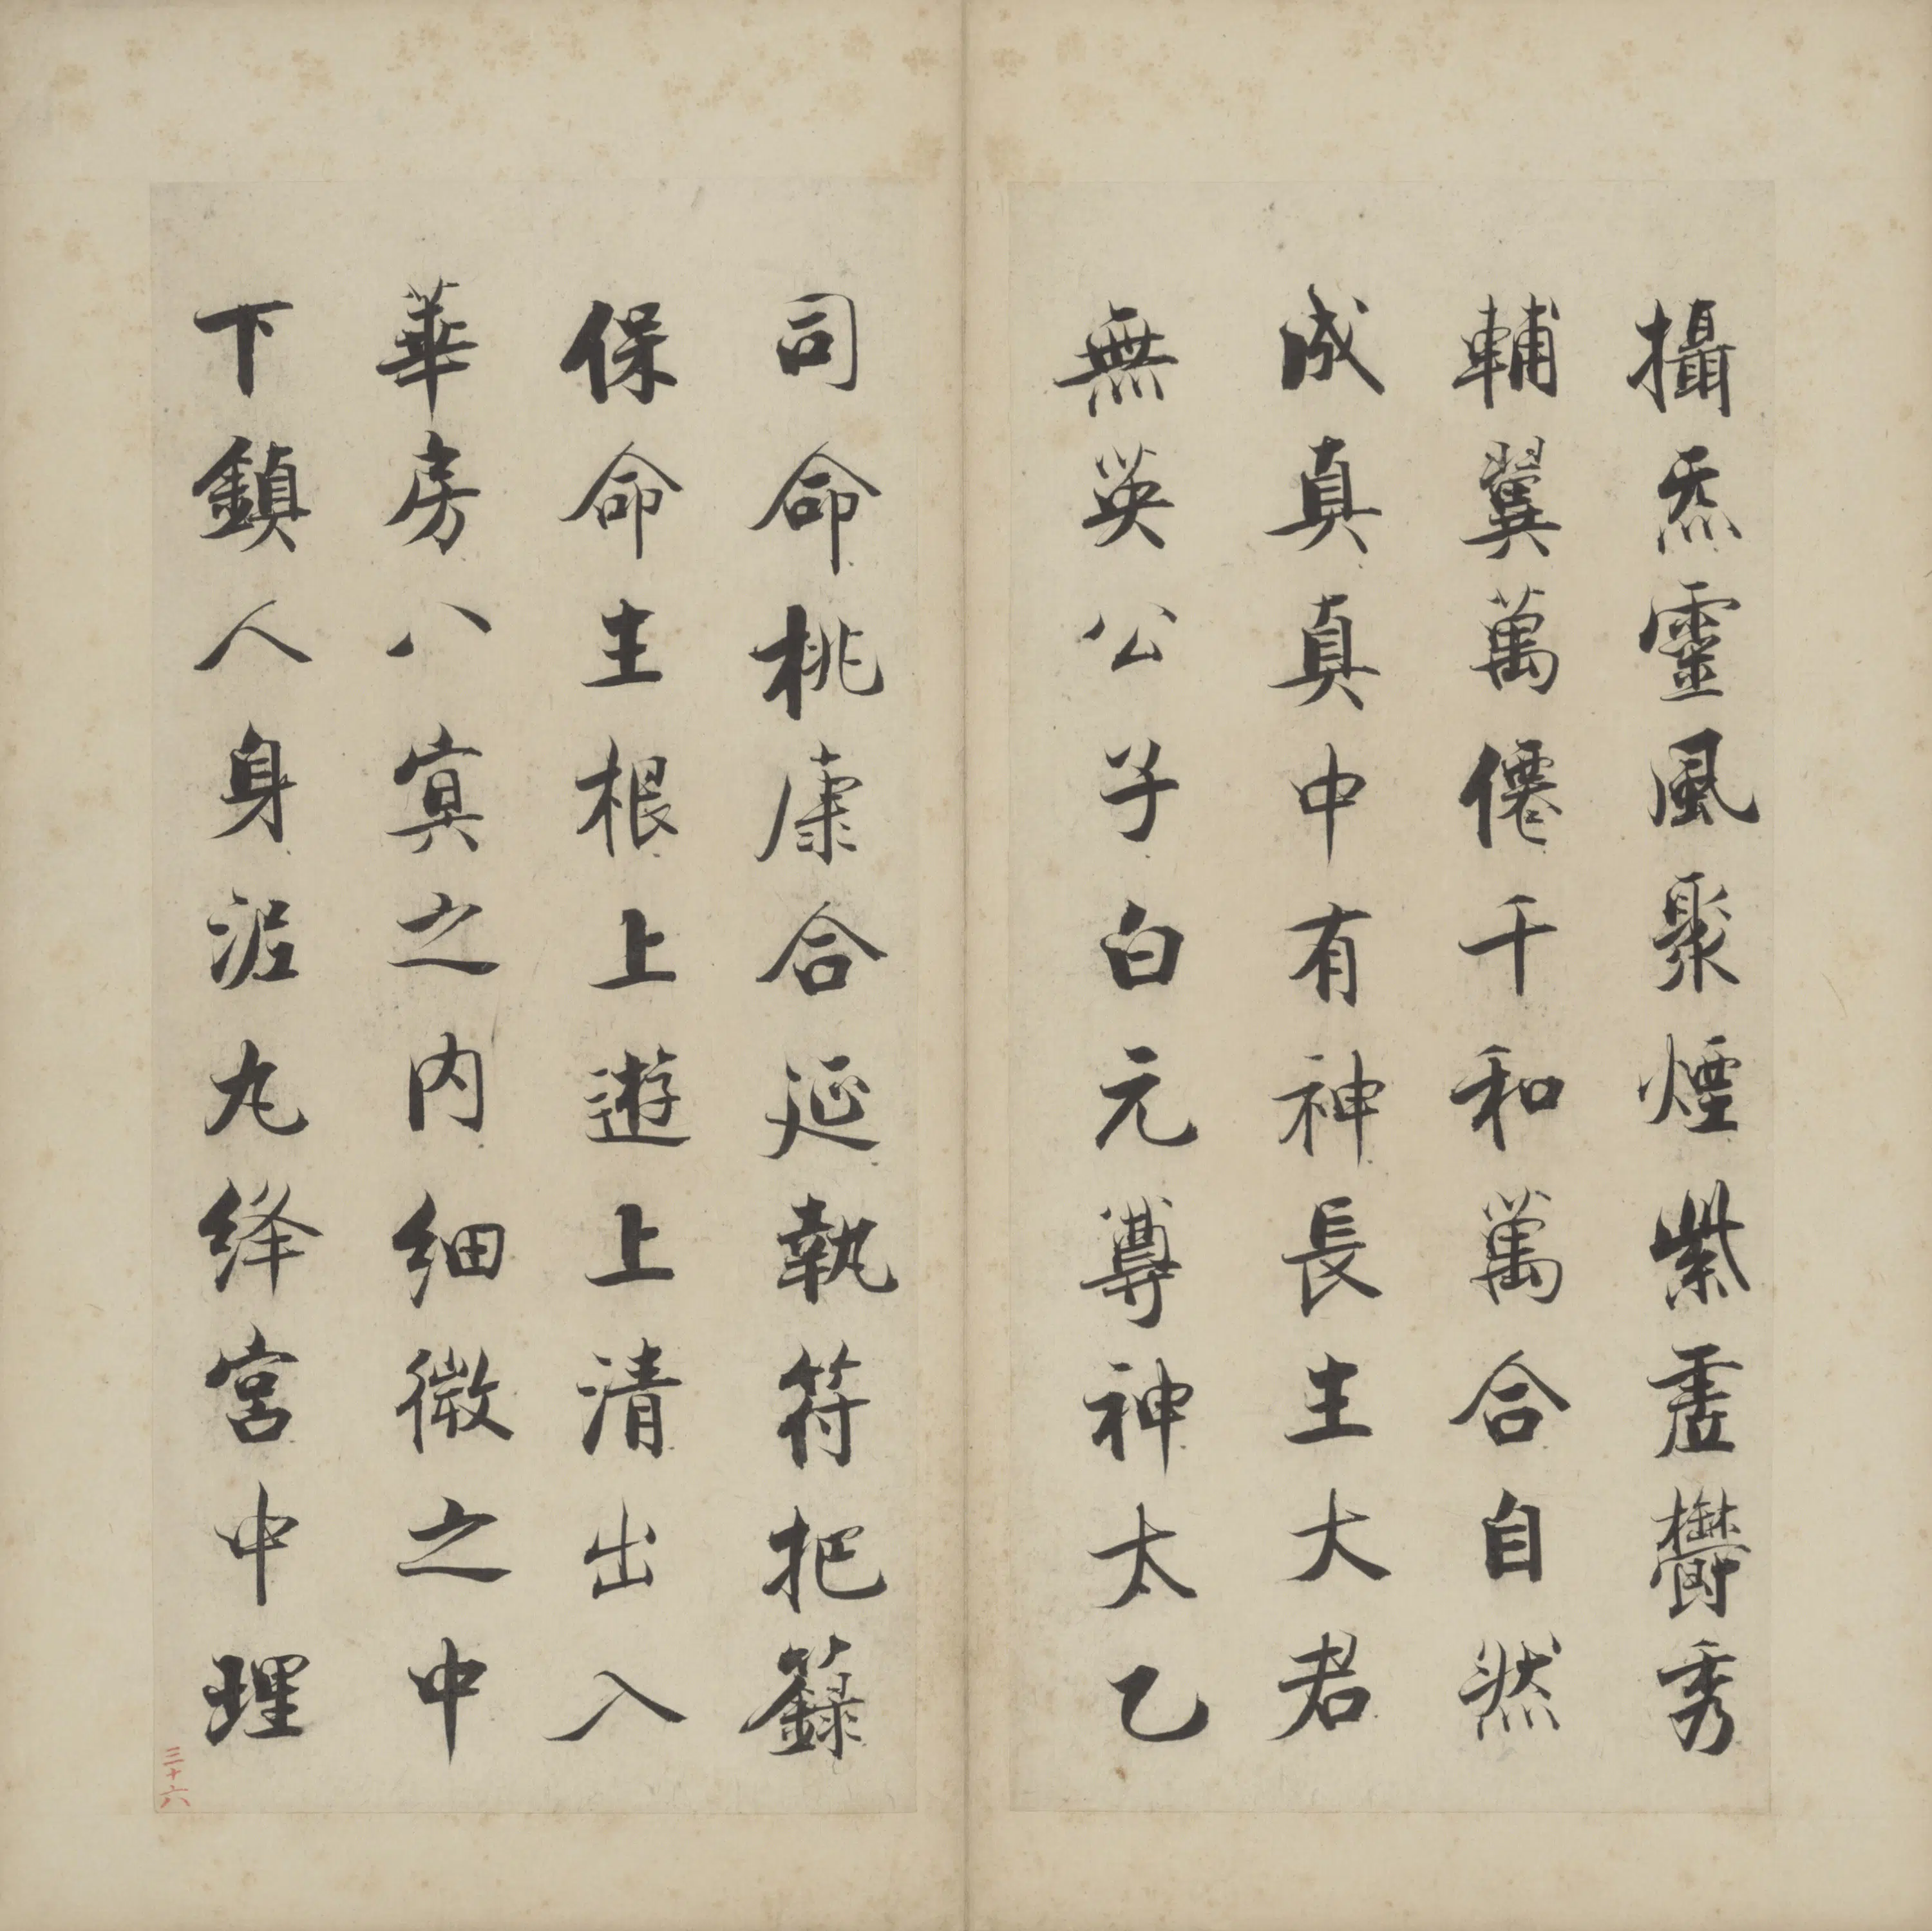 攝炁靈風聚煙紫虛鬱秀
輔翼萬僊千和萬合自然
成真真中有神長生大君
無英公子白元尊神太乙
司命桃康合延執符把籙
保命生根上遊上清出入
華房八冥之内細微之中
下鎮人身泥丸絳宮中理
三十六